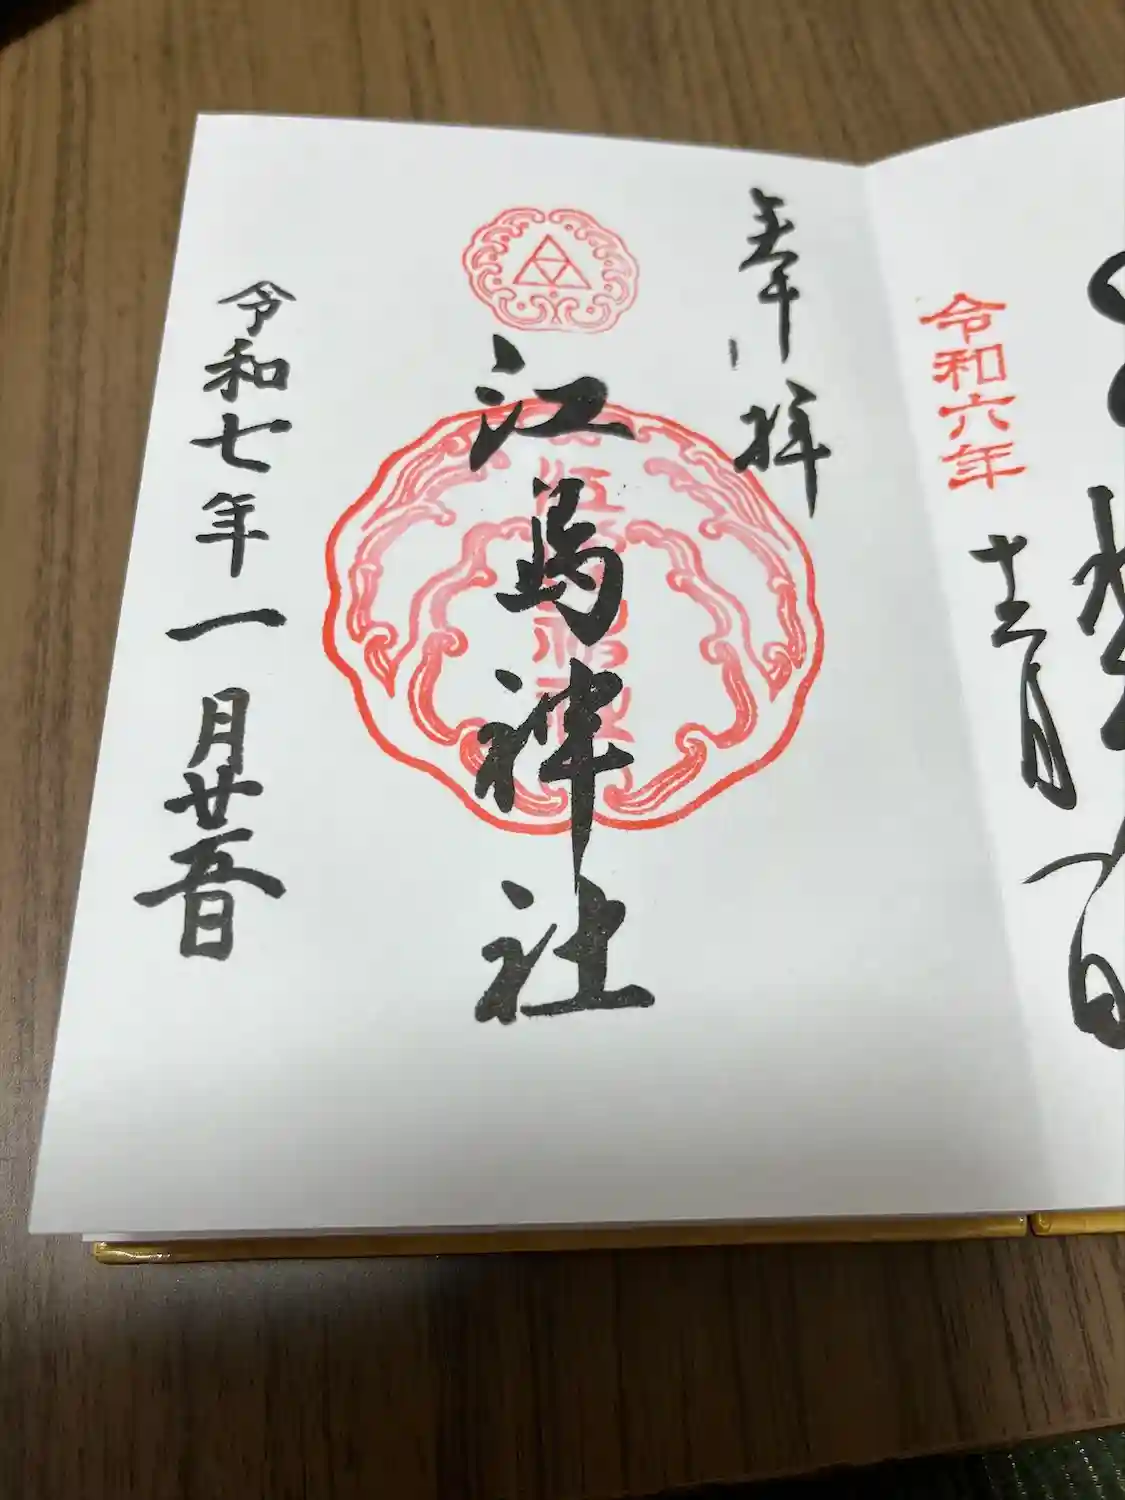 令和六年
十二月
奉拝
江島神社
江島神社
令和七年一月廿五日